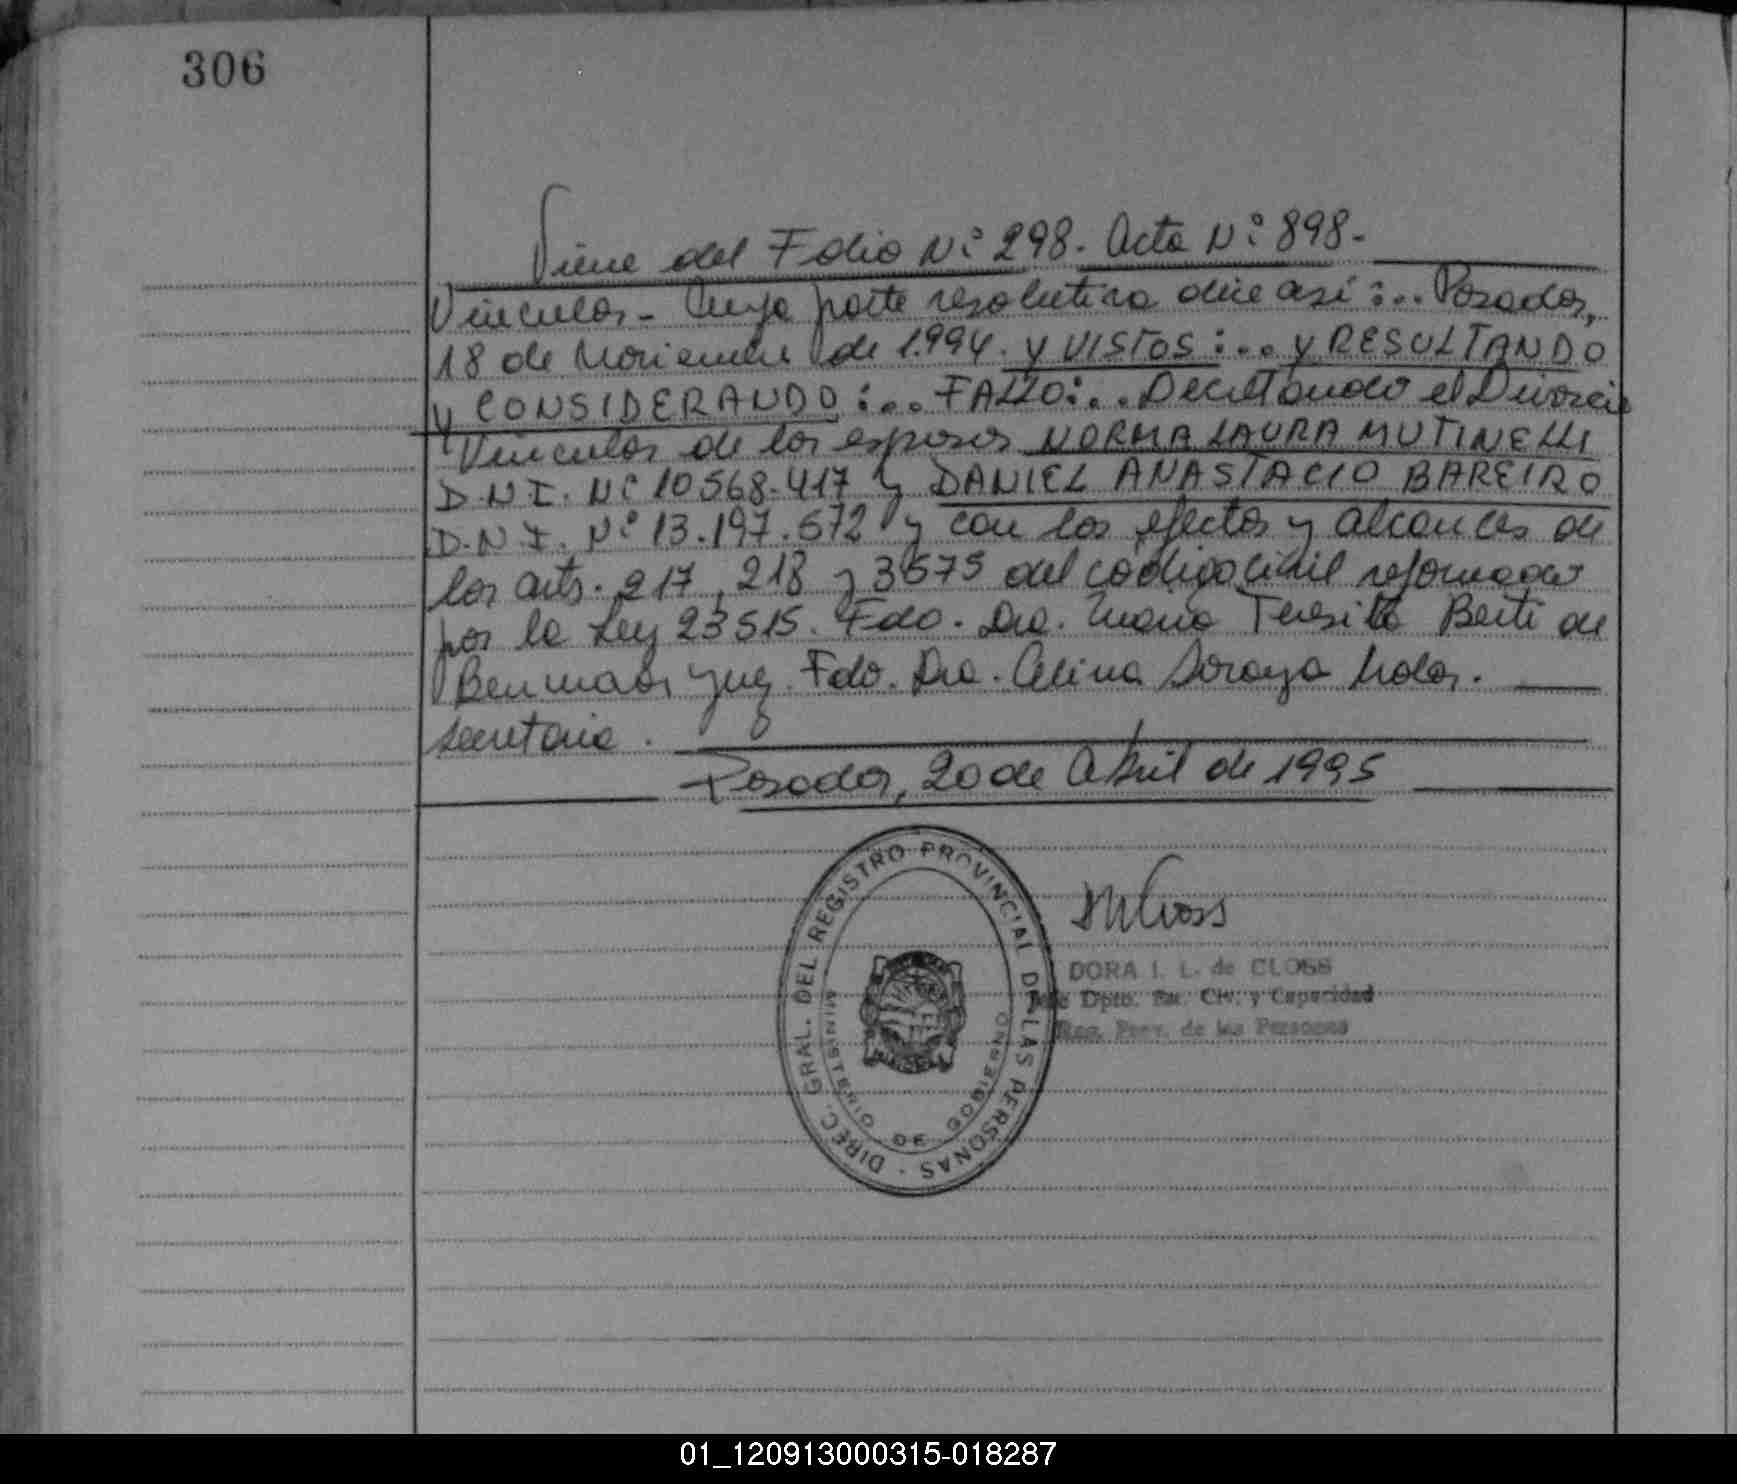 306
Viene del Folio Nº 298. Acta Nº 898.
Vincular. Cuya parte resolutiva dice así:... Posadas,
18 de Noviembre de 1.994. Y VISTOS:... y RESULTANDO
y CONSIDERANDO:... FALLO:... Decretando el Divorcio
Vincular de los esposos NORMA LAURA MUTINELLI
D.N.I. Nº 10568.417 y DANIEL ANASTACIO BAREIRO
D.N.I. Nº 13.197.572 y con los efectos y alcances de
los arts. 217, 218 y 3575 del código civil reformado
por la Ley 23515. Fdo. Dra. María Teresita Berti de
Juez. Fdo. Dra. Celina Soraya
secretaria.
Posadas, 20 de Abril de 1995
DIREC. GRAL. DEL REGISTRO PROVINCIAL DE LAS PERSONAS
MINISTERIO DE GOBIERNO
DORA I. L. de CLOSS
Jefe Dpto. Est. Civ. y Capacidad
Reg. Prov. de las Personas
01_120913000315-018287